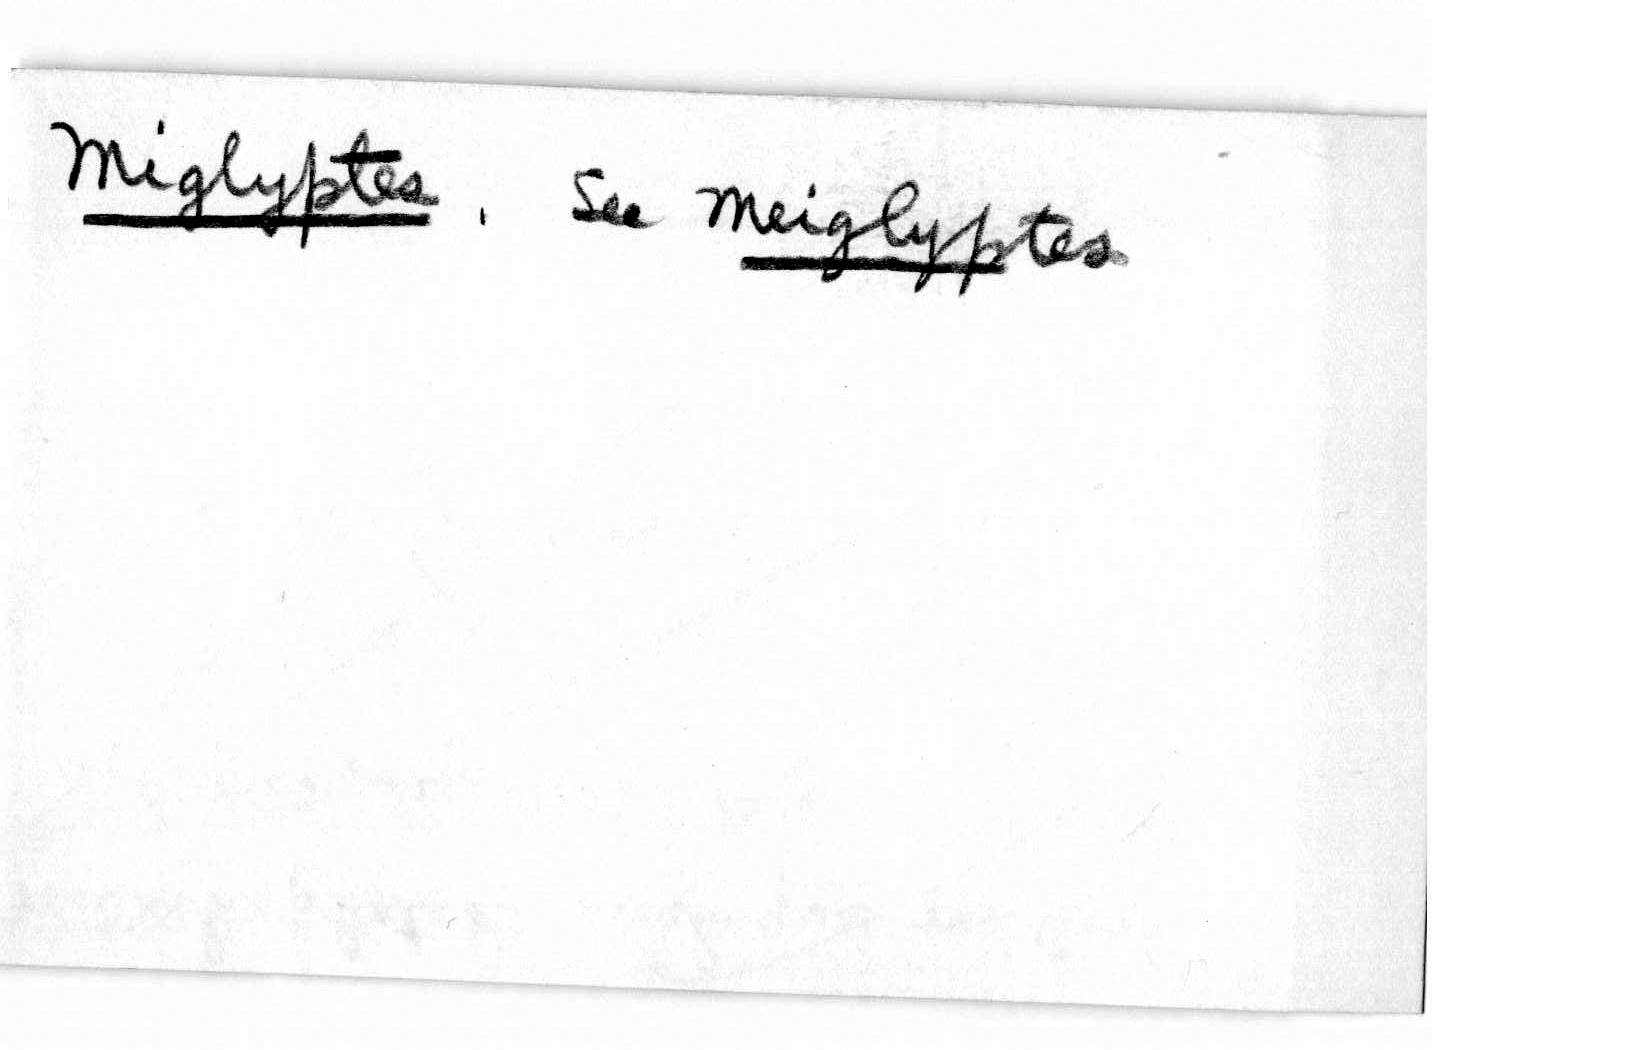 Miglyptes. See Meiglyptes